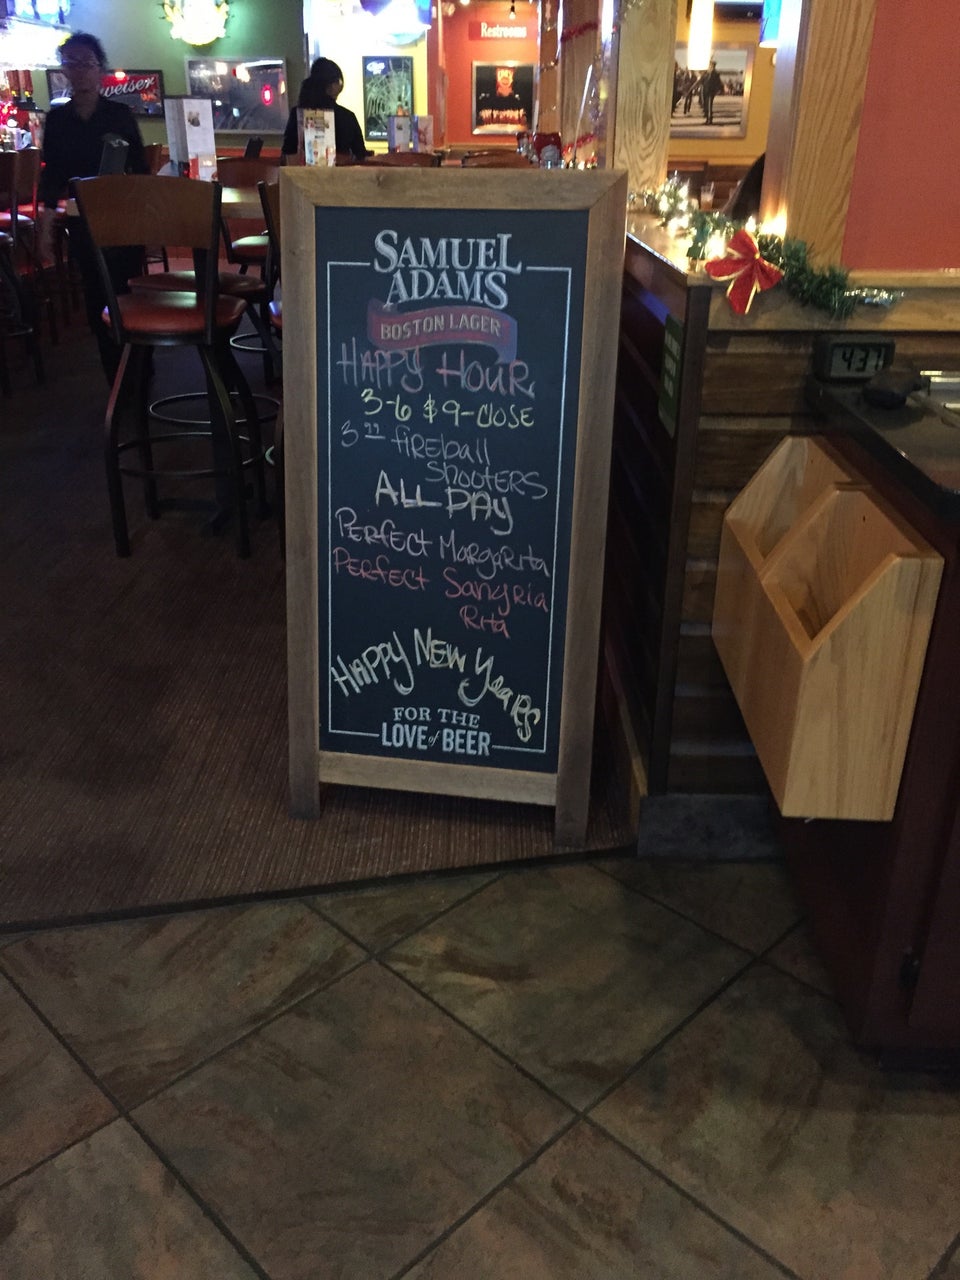 Restrooms
Budweiser
SAMUEL
ADAMS
BOSTON LAGER
HAPPY HOUR
3-6 & 9-CLOSE
3 22 fireball
shooters
ALL DAY
Perfect Margarita
Perfect Sangria
Rita
HAPPY NEW YeaRS
FOR THE
LOVE of BEER
4:37